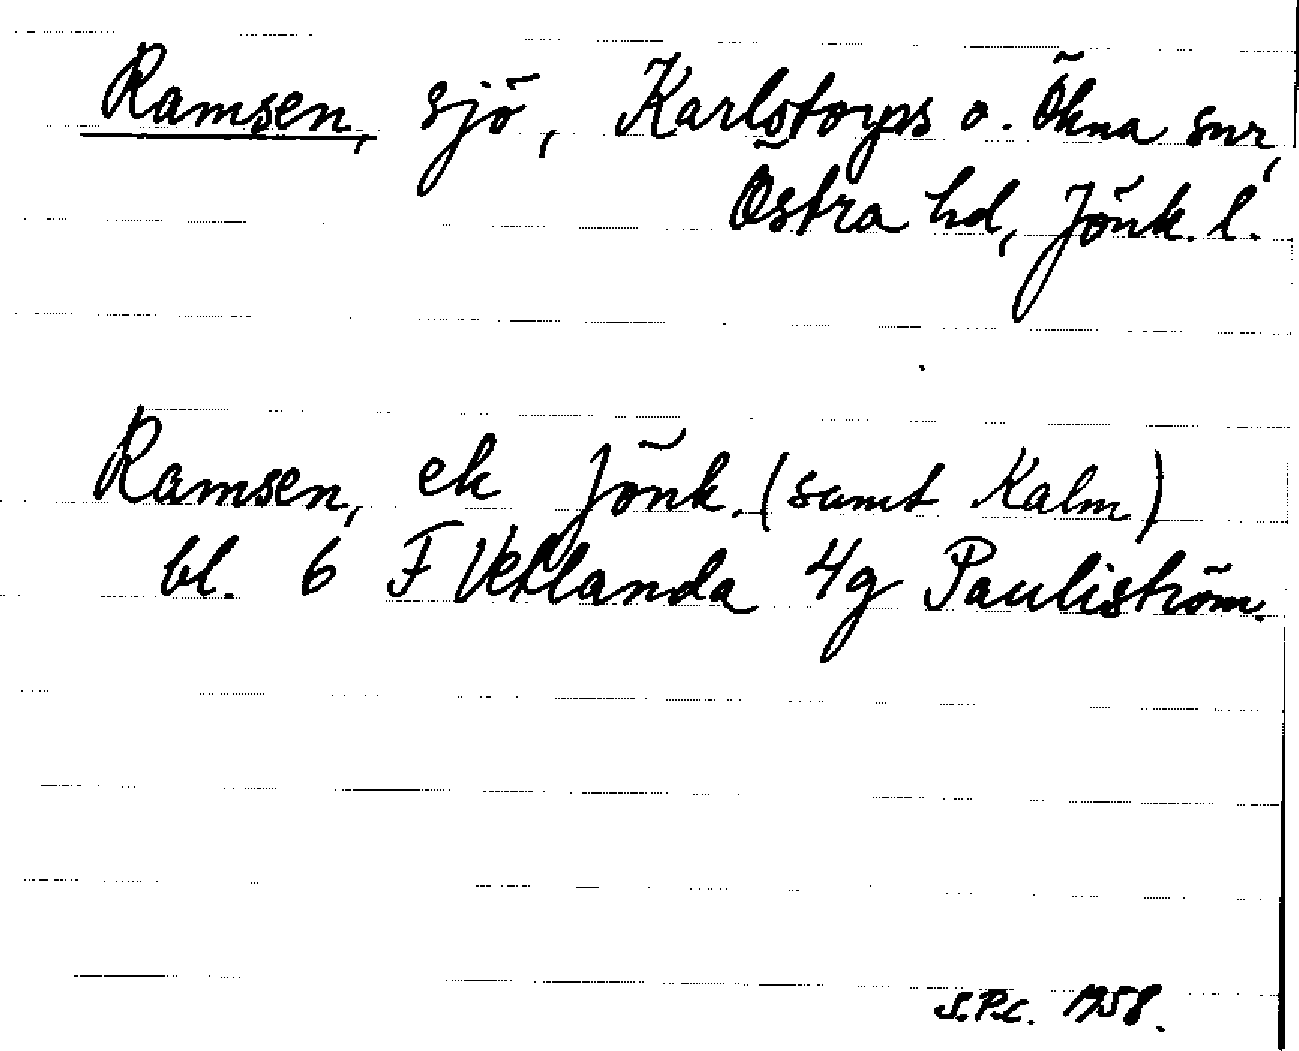 Ramsen, sjö, Karlstorps o. Ökna snr,
Östra hd, Jönk. l.
Ramsen, ek Jönk. (samt Kalm)
bl. 6 F Vetlanda 4g Pauliström.
S.P.c. 1958.